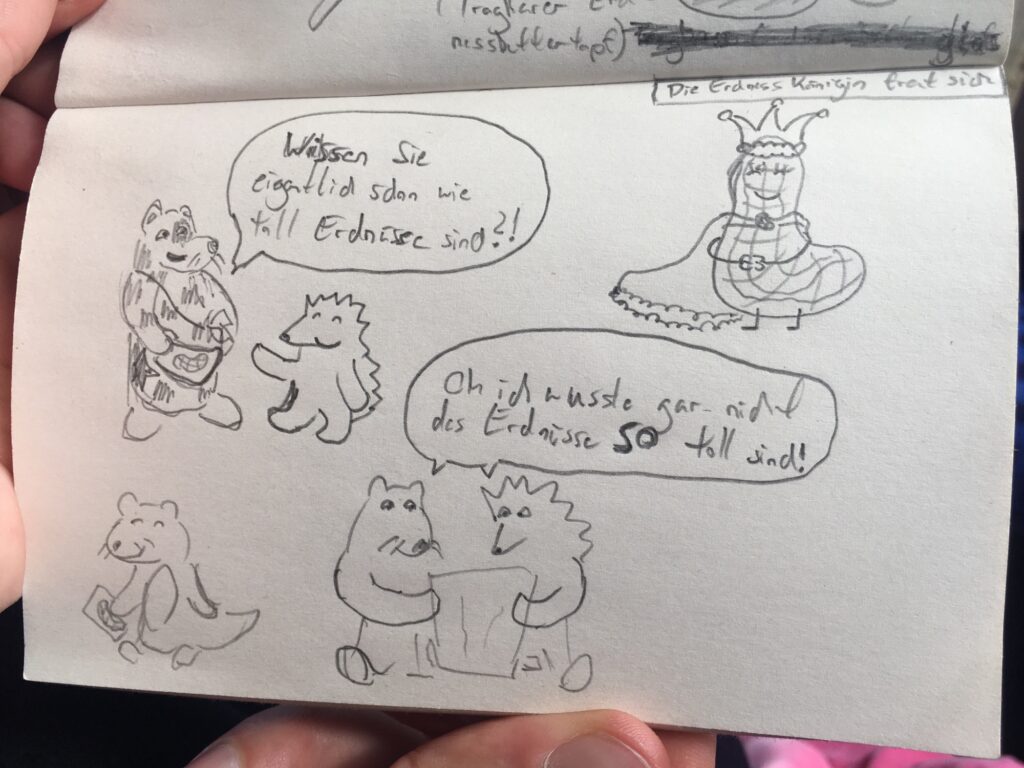 (Tragbarer Erd-
nussbuttertopf)
Die Erdnuss Königin freut sich
Wissen Sie
eigentlich schon wie
toll Erdnüsse sind?!
Oh ich wusste gar nicht
das Erdnüsse SO toll sind!